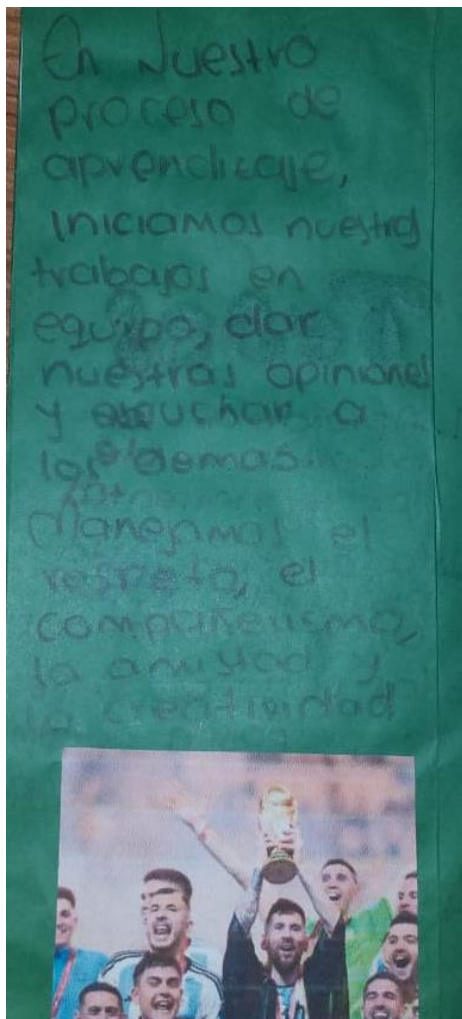 En Nuestro
proceso de
aprendizaje,
iniciamos nuestros
trabajos en
equipo, dar
nuestras opiniones
y escuchar a
los demas.
Manejamos el
respeto, el
compañerismo,
la amistad y
la creatividad